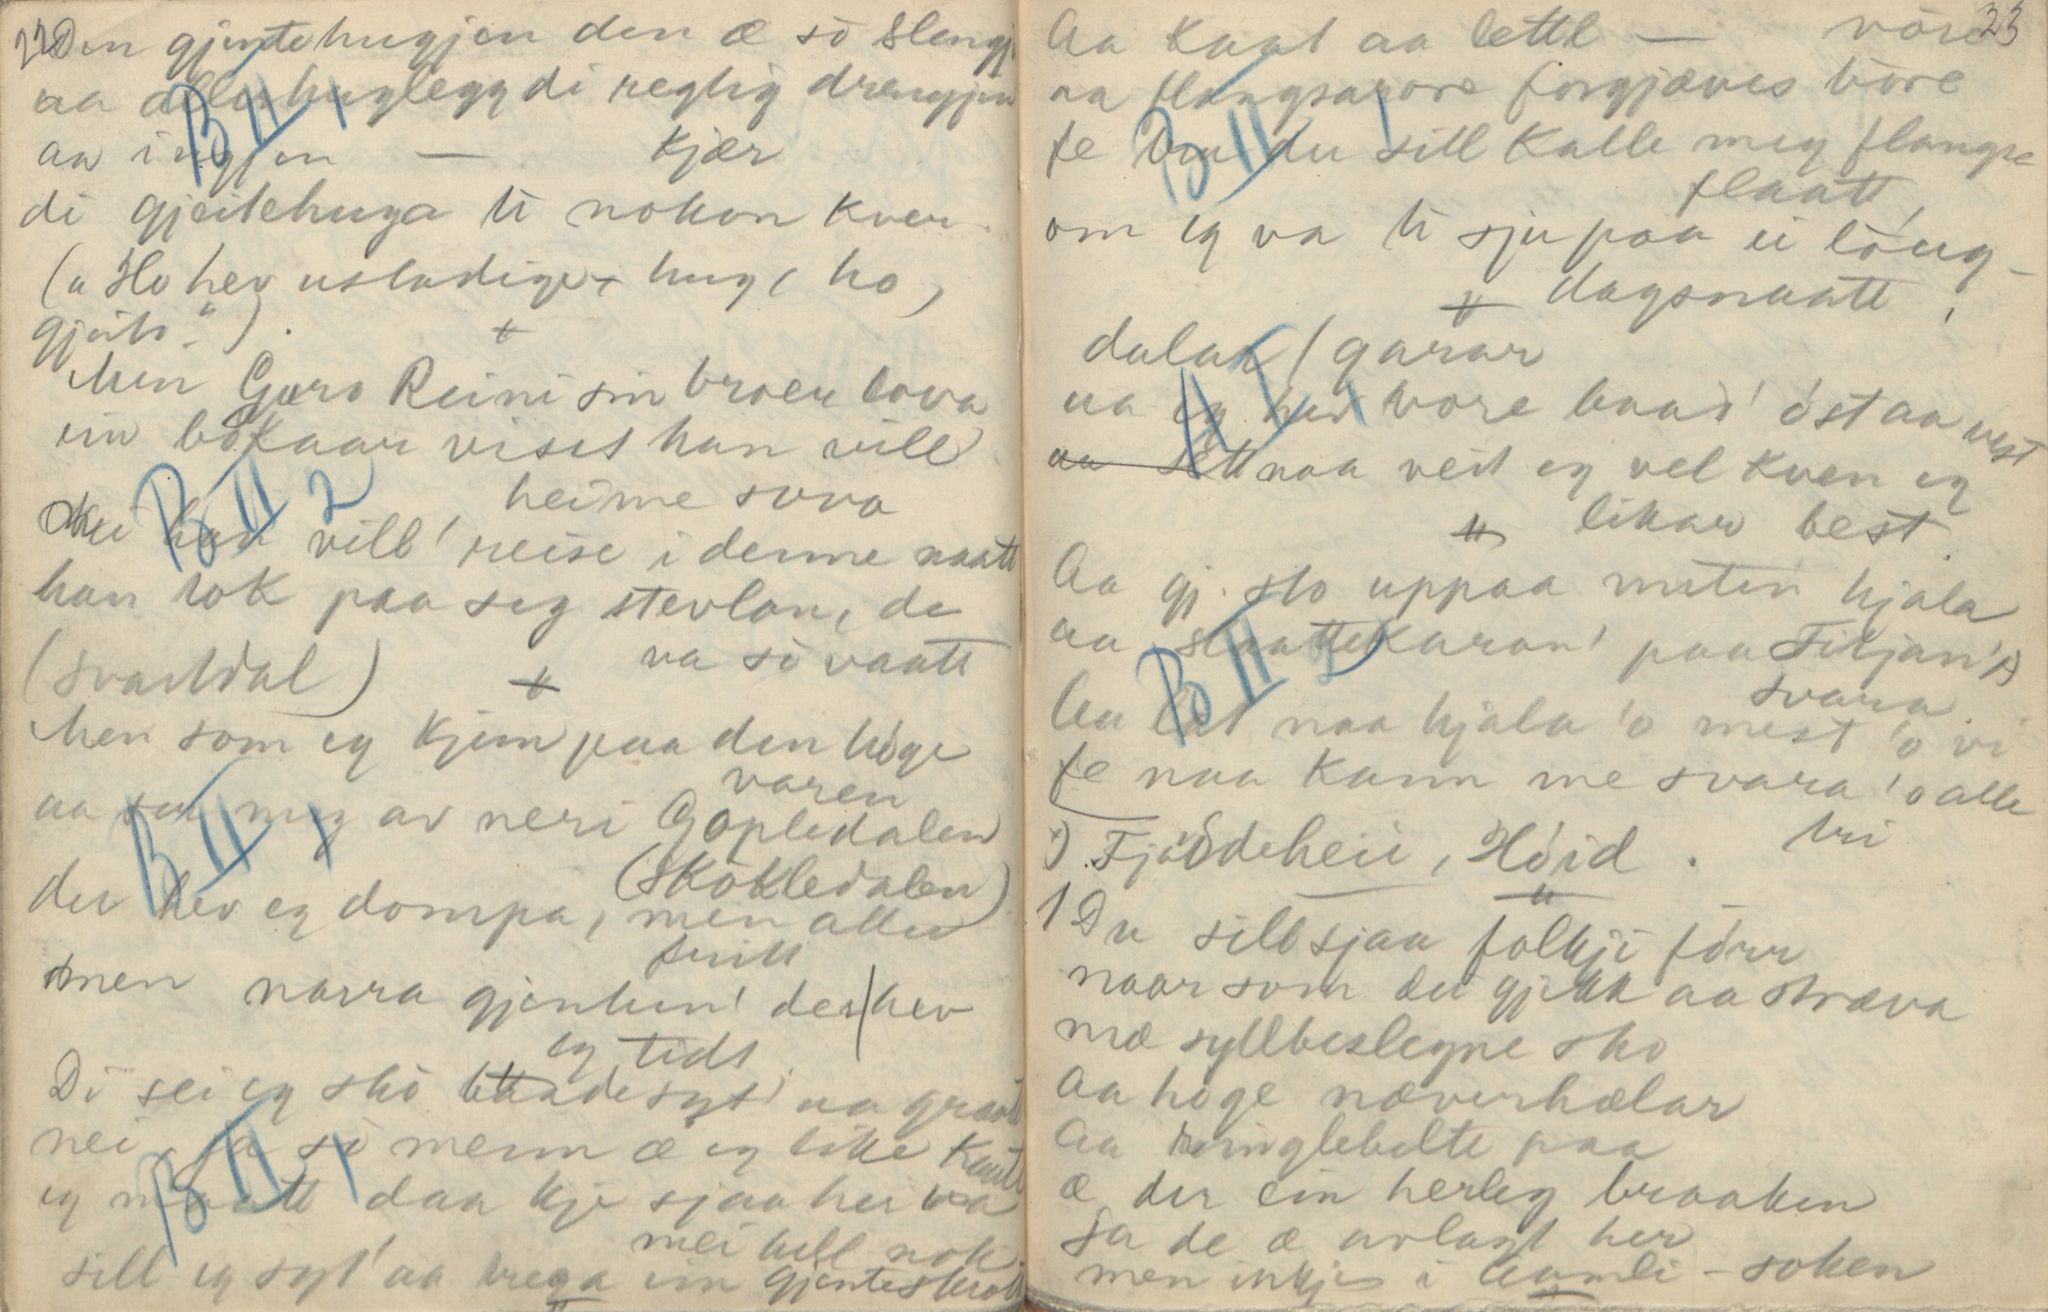 22 Den gjentehugjen den æ so slengj
aa allerhuglegg di reglig drengjin
aa ingjen — kjær
di gjeitehuga ti nokon kver
("Ho hev usladige hug, ho,
gjeita").
+
Men Guro Reini sin broer lova
ein bokaar visst han vill
heime sova
B II 2
han vill' reise i denne naatt
han tok paa seg stevlan, de
va so vaatt
(Svartdal)
Men som eg kjem paa den höge
varen
aa ser meg av neri Gopledalen
(Skokledalen)
B II 1
der hev eg dompa, men aller
men narra gjentun' der hev
eg tidt
Di sei eg sko baade syt' aa graat
nei, ja so menn æ eg like kaat
B II 1
eg maatt daa kje sjaa her va
mei hell nok
sill eg syt' aa trega ein gjenteskrott
23
Aa kaat aa lett — vöre
aa flangsarore forgjæves böre
B II 1
fe du sill kalle meg flangse
flaatt
om eg va ti sju paa ei löug-
dagsnaatt
dalar / garar
aa eg hev vore baad' öst aa vest
A I 1
naa veit eg vel kven eg
likar best
Aa gj. sto uppaa muten hjala
aa slaattekaran' paa Filjan' x)
svara
B II 2
Aa lat naa hjala 'o mest 'o vi
fe naa kann me svara 'o alle
tri
x) Fjöddeheii, Höid.
1 Du sill sjaa folkji förr
naar som dei gjekk aa stræva
mæ syllbeslegne sko
aa höge næverhælar
Aa ringlebelte paa
æ der ein herleg braaken
Ja de æ avlagt her
men inkje i Aamli-soken